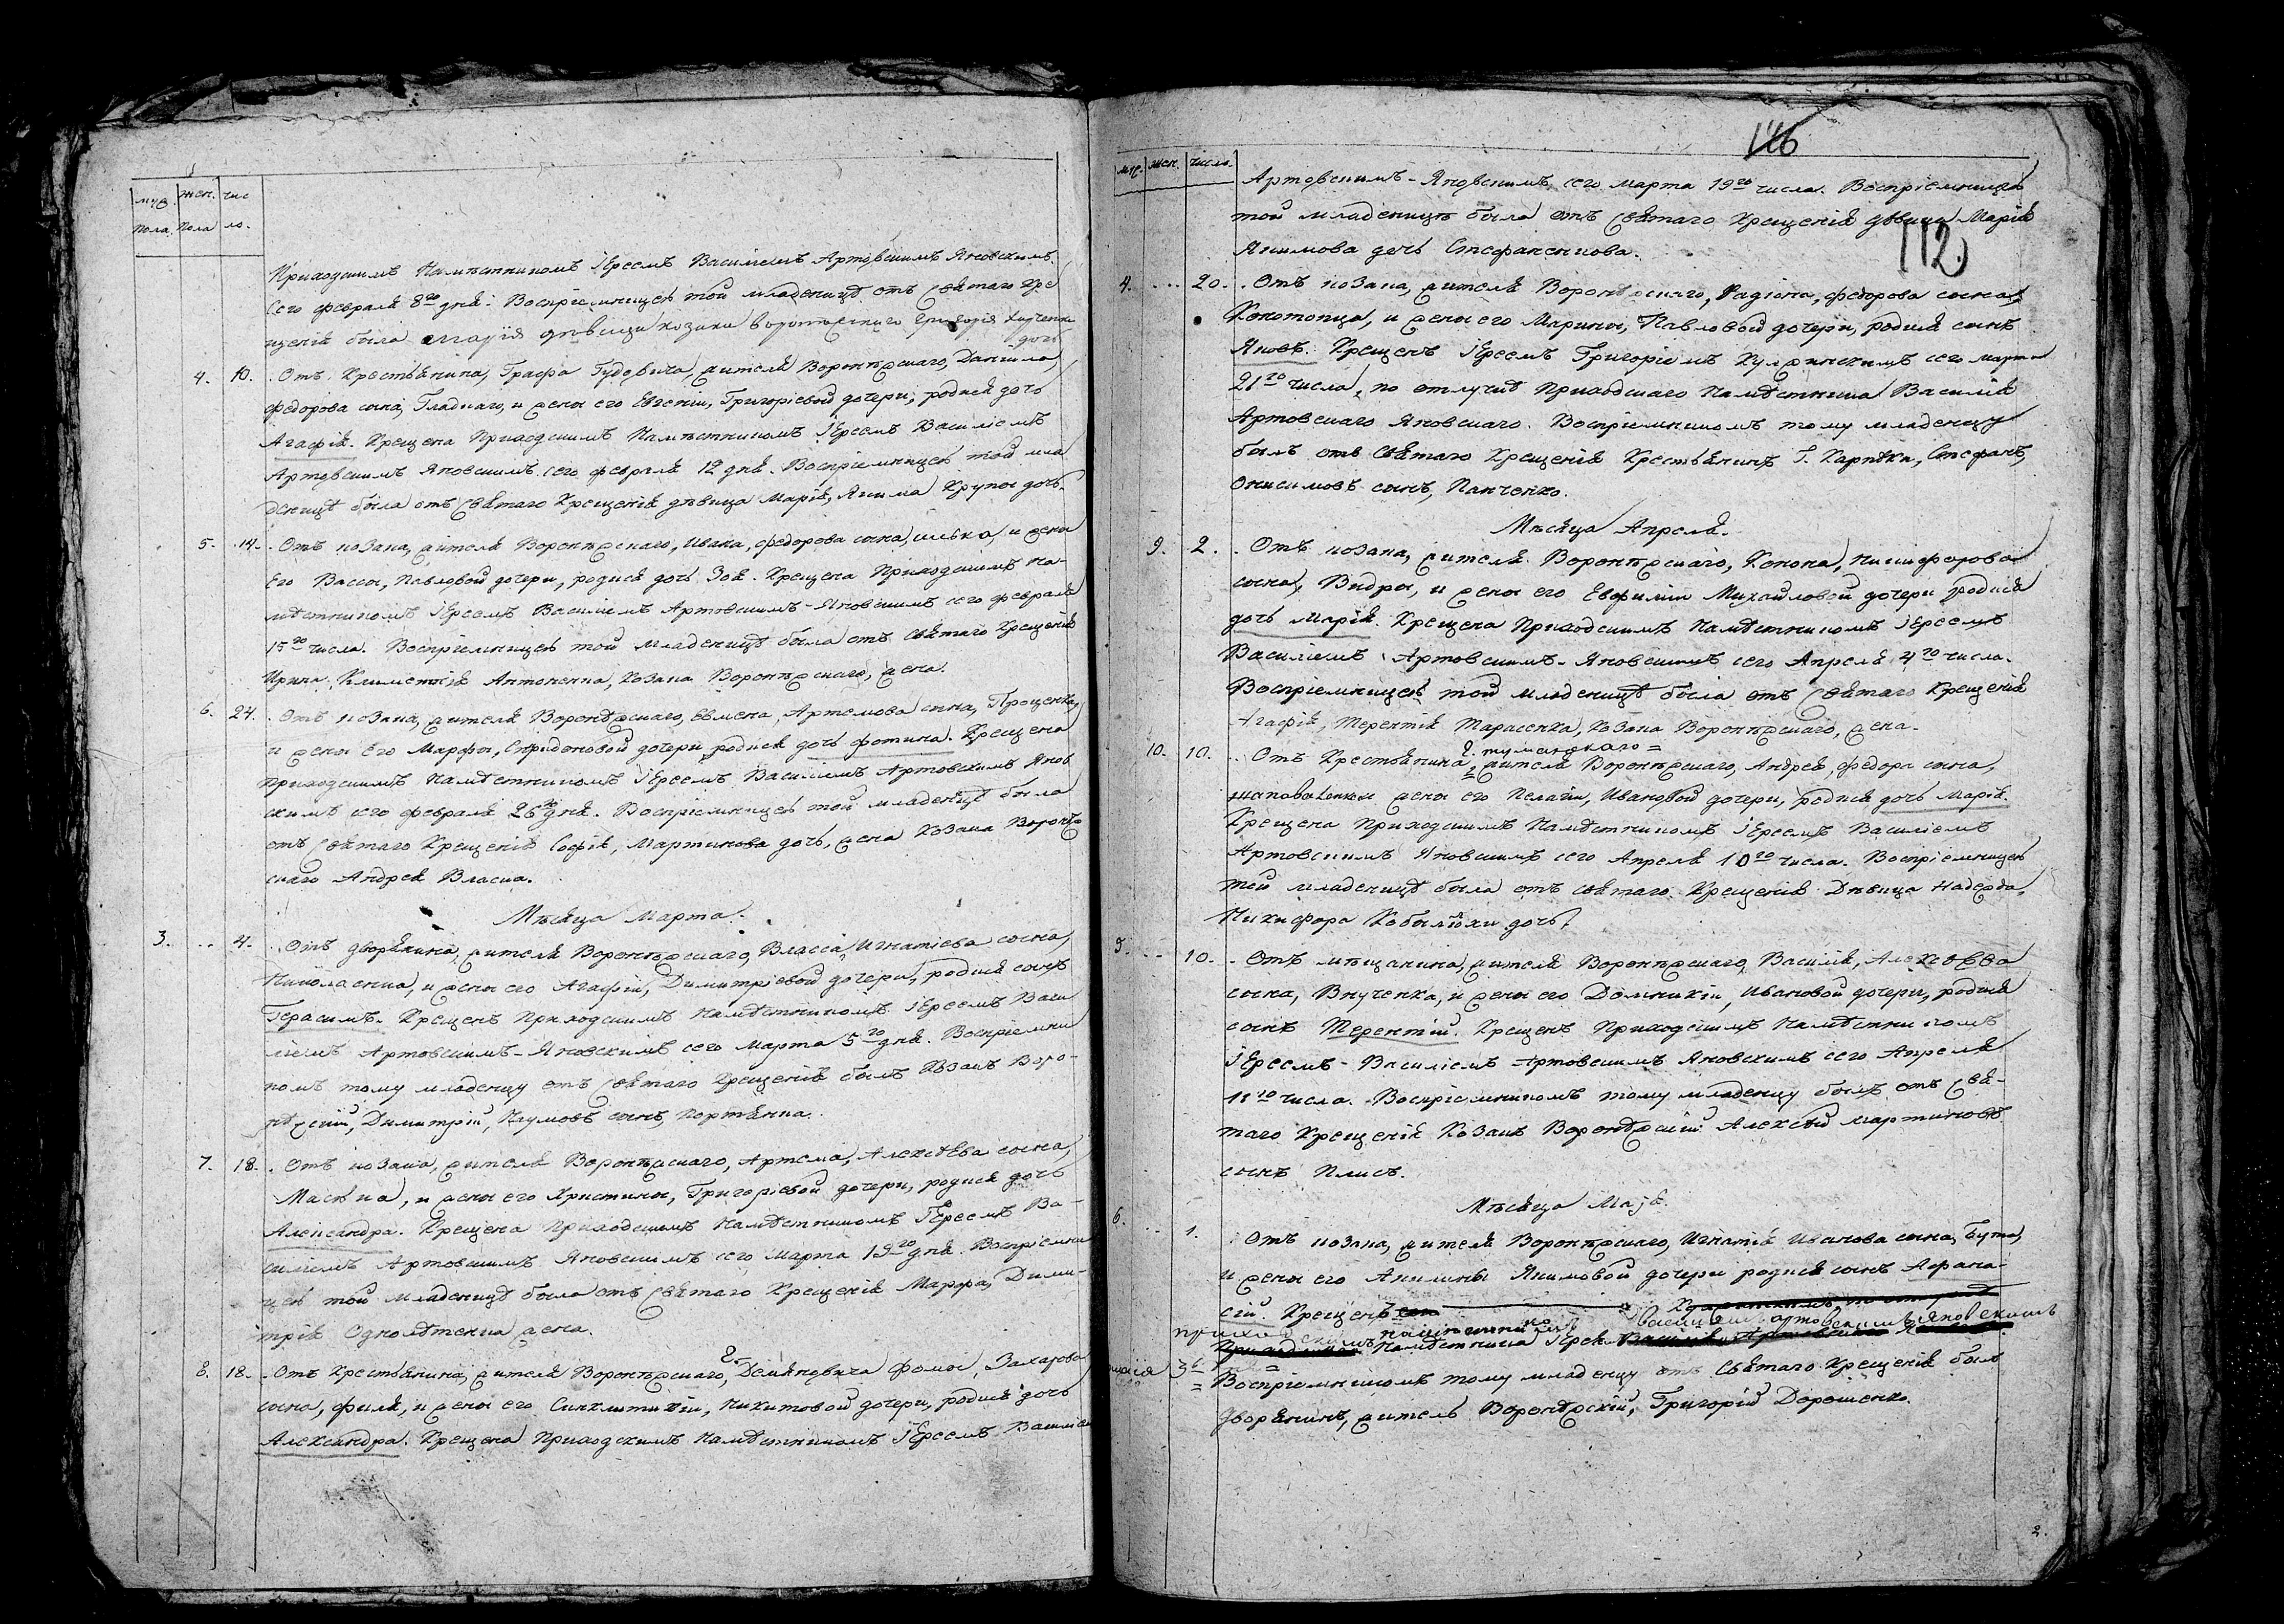 муж. жен. чис
пола. пола ло.
Приходскимъ Намѣстникомъ Іереемъ Василіемъ Артовскимъ Яновскимъ.
сего февраля 8го дня: Воспріемницею той младеницѣ отъ святаго Кре
щенія была Марія дѣвица козака воронѣжскаго Григорія
дочь
4. 10. Отъ Крестьянина, Графа Гудовича, жителя Воронѣжскаго, Даніила,
федорова сына, Гладкаго, и жены его Евгеніи, Григоріевой дочери, родися дочь
Агафія. Крещена Приходскимъ Намѣстникомъ Іереемъ Василіемъ
Артовскимъ Яновскимъ сего февраля 12 дня. Воспріемницею той мла
деницѣ была отъ Святаго Крещенія дѣвица Марія, Якима Крупы дочь.
5. 14. Отъ козака, жителя Воронѣжскаго, Ивана, федорова сына, илька, и жены
Его Вассы, Павловой дочери, родися дочь Зоя. Крещена Приходскимъ На-
мѣстникомъ Іереемъ Василіемъ Артовскимъ-Яновскимъ сего февраля
15го числа. Воспріемницею той младеницѣ была отъ Святаго Крещенія
Ирина, Климентія Антоненка, Козака Воронѣжскаго, жена.
6. 24. Отъ козака, жителя Воронѣжскаго, Евмена, Артемова сына, Проценка,
и жены Его Марфы, Спиридоновой дочери родися дочь фотина. Крещена
Приходскимъ Намѣстникомъ Іереемъ Василіемъ Артовскимъ Янов
скимъ сего февраля 26го дня. Воспріемницею той младеницѣ была
отъ Святаго Крещенія Софія, Мартинова дочь, жена Козака Воронѣж
скаго Андрея Власка.
Мѣсяца Марта.
3. .. 4. Отъ дворянина, жителя Воронѣжскаго, Власія, Игнатіева сына,
Николаенка, и жены его Агафіи, Димитріевой дочери, родися сынъ
Герасимъ. Крещенъ Приходскимъ Намѣстникомъ Іереемъ Васи
ліемъ Артовскимъ-Яновскимъ сего Марта 5го дня. Воспріемни
комъ тому младенцу отъ Святаго Крещенія былъ Козакъ Воро-
нѣжскій, Димитрій, Наумовъ сынъ, Портянка.
7. 18. Отъ козака, жителя Воронѣжскаго, Артема, Алексѣева сына,
Масюка, и жены его Христины, Григоріевой дочери, родися дочь
Александра. Крещена Приходскимъ Намѣстникомъ Іереемъ Ва-
силіемъ Артовскимъ Яновскимъ сего Марта 19го дня. Воспріемни
цею той младеницѣ была отъ Святаго Крещенія Марфа, Дими-
трія Однолѣтенка жена.
8. 18. Отъ Крестьянина, жителя Воронѣжскаго, Г. Демяновича фомы, Захарова
сына, филя, и жены его Синклитикіи, Никитовой дочери, родися дочь
Александра. Крещена Приходскимъ Намѣстникомъ Іереемъ Василіем
116
муж. жен. число.
Артовскимъ-Яновскимъ сего марта 19го числа. Воспріемницею
той младеницѣ была отъ Святаго Крещенія дѣвица Марія
Якимова дочь Стефаненкова.
112
4. .... 20. Отъ козака, жителя Воронѣжскаго, Радіона, федорова сына,
Конотопца, и жены его Марины, Павловой дочери, родися сынъ
Яковъ. Крещенъ Іереемъ Григоріемъ Кулжинскимъ сего марта
21го числа, по отлучкѣ Приходскаго Намѣстника Василія
Артовскаго Яновскаго. Воспріемникомъ тому младенцу
былъ отъ Святаго Крещенія Крестьянинъ Г. Карпѣки, Стефанъ,
Онисимовъ сынъ, Панченко.
Мѣсяца Апреля.
9. 2. Отъ козака, жителя Воронѣжскаго, Конона, Никифорова
сына, Видры, и жены его Евфиміи Михайловой дочери родися
дочь Марія. Крещена Приходскимъ Намѣстникомъ Іереемъ
Василіемъ Артовскимъ-Яновскимъ сего Апреля 4го числа.
Воспріемницею той младеницѣ была отъ Святаго Крещенія
Агафія, Терентія Тарасенка, Козака Воронѣжскаго, жена.
Г. туманскаго =
10. 10. Отъ Крестьянина = жителя Воронѣжскаго, Андрея, федора сына,
шаповаленка жены его Пелагіи, Ивановой дочери, родися дочь Марія.
Крещена Приходскимъ Намѣстникомъ Іереемъ Василіемъ
Артовскимъ Яновскимъ сего Апреля 10го числа. Воспріемницею
той младеницѣ была отъ святаго Крещенія Дѣвица Надежда,
Никифора Кобыляхи дочь,
5. .. 10. Отъ мѣщанина, жителя Воронѣжскаго, Василія, Алексѣева
сына, Внученка, и жены его Домникіи, Ивановой дочери, родися
сынъ Терентій. Крещенъ Приходскимъ Намѣстникомъ
Іереемъ-Василіемъ Артовскимъ Яновскимъ сего Апреля
11го числа. Воспріемникомъ тому младенцу былъ отъ Свя-
таго Крещенія Козакъ Воронѣжскій Алексѣй Мартиновъ
сынъ Плисъ.
Мѣсяца Маія.
6. ... 1. Отъ козака, жителя Воронѣжскаго, Игнатія Иванова сына, Бута,
и жены его Акилины Якимовой дочери родися сынъ Афана-
сій. Крещенъ
приходскимъ Василіем артовскимъ яновскимъ
Намѣстника Іерея
маія 3го
= Воспріемникомъ тому младенцу отъ Святаго Крещенія былъ
Дворянинъ, житель Воронѣжскій, Григорій Дорошенко.
2.